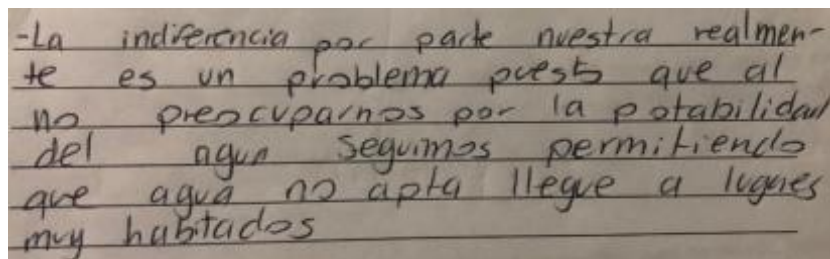 -La indiferencia por parte nuestra realmen-
te es un problema puesto que al
no preocuparnos por la potabilidad
del agua seguimos permitiendo
que agua no apta llegue a lugares
muy habitados